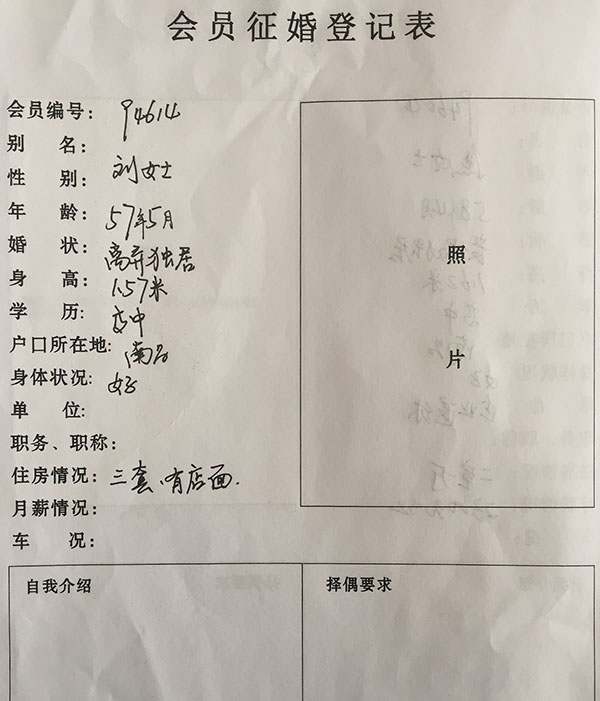 会员征婚登记表
会员编号：94614
别 名：
性 别：刘女士
年 龄：57年5月
婚 状：离异独居
身 高：1.57米
学 历：高中
户口所在地：南昌
身体状况：好
单 位：
职务、职称：
住房情况：三套、有店面.
月薪情况：
车 况：
照
片
自我介绍
择偶要求